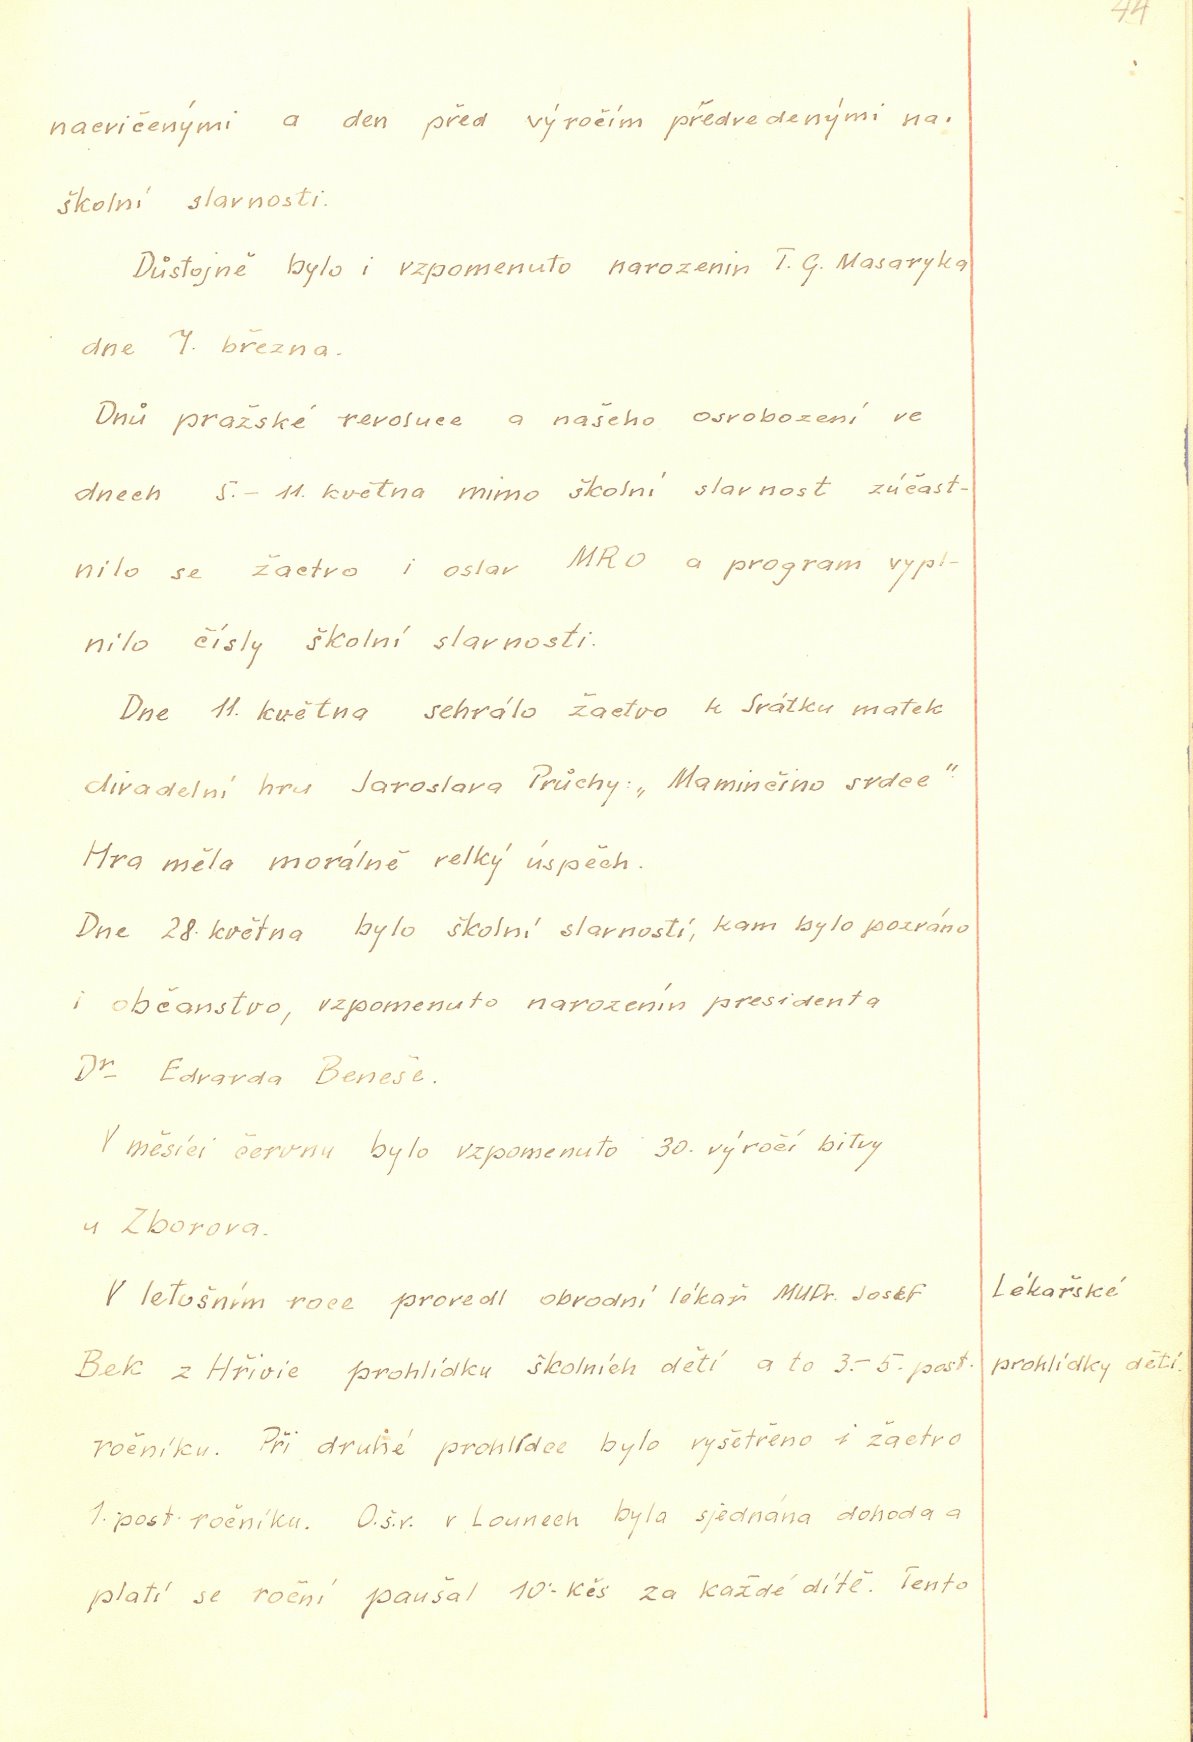 44
nacvičenými a den před výročím předvedenými na
školní slavnosti.
Důstojně bylo i vzpomenuto narozenin T. G. Masaryka
dne 7. března.
Dnů pražské revoluce a našeho osvobození ve
dnech 5. - 11. května mimo školní slavnost zúčast-
nilo se žactvo i oslav MRO a program vypl-
nilo čísly školní slavnosti.
Dne 11. května sehrálo žactvo k Svátku matek
divadelní hru Jaroslava Průchy: „Maminčino srdce"
Hra měla morálně velký úspěch.
Dne 28. května bylo školní slavností, kam bylo pozváno
i občanstvo, vzpomenuto narozenín presidenta
Dr Edvarda Beneše.
V měsíci červnu bylo vzpomenuto 30. výročí bitvy
u Zborova.
V letošním roce provedl obvodní lékař MUDr. Josef
Lékařské
Bek z Hřivic prohlídku školních dětí a to 3. - 5. post.
prohlídky dětí.
ročníku. Při druhé prohlídce bylo vyšetřeno i žactvo
1. post. ročníku. O.š.v. v Lounech byla sjednána dohoda a
platí se roční paušal 10·- Kčs za každé dítě. Tento